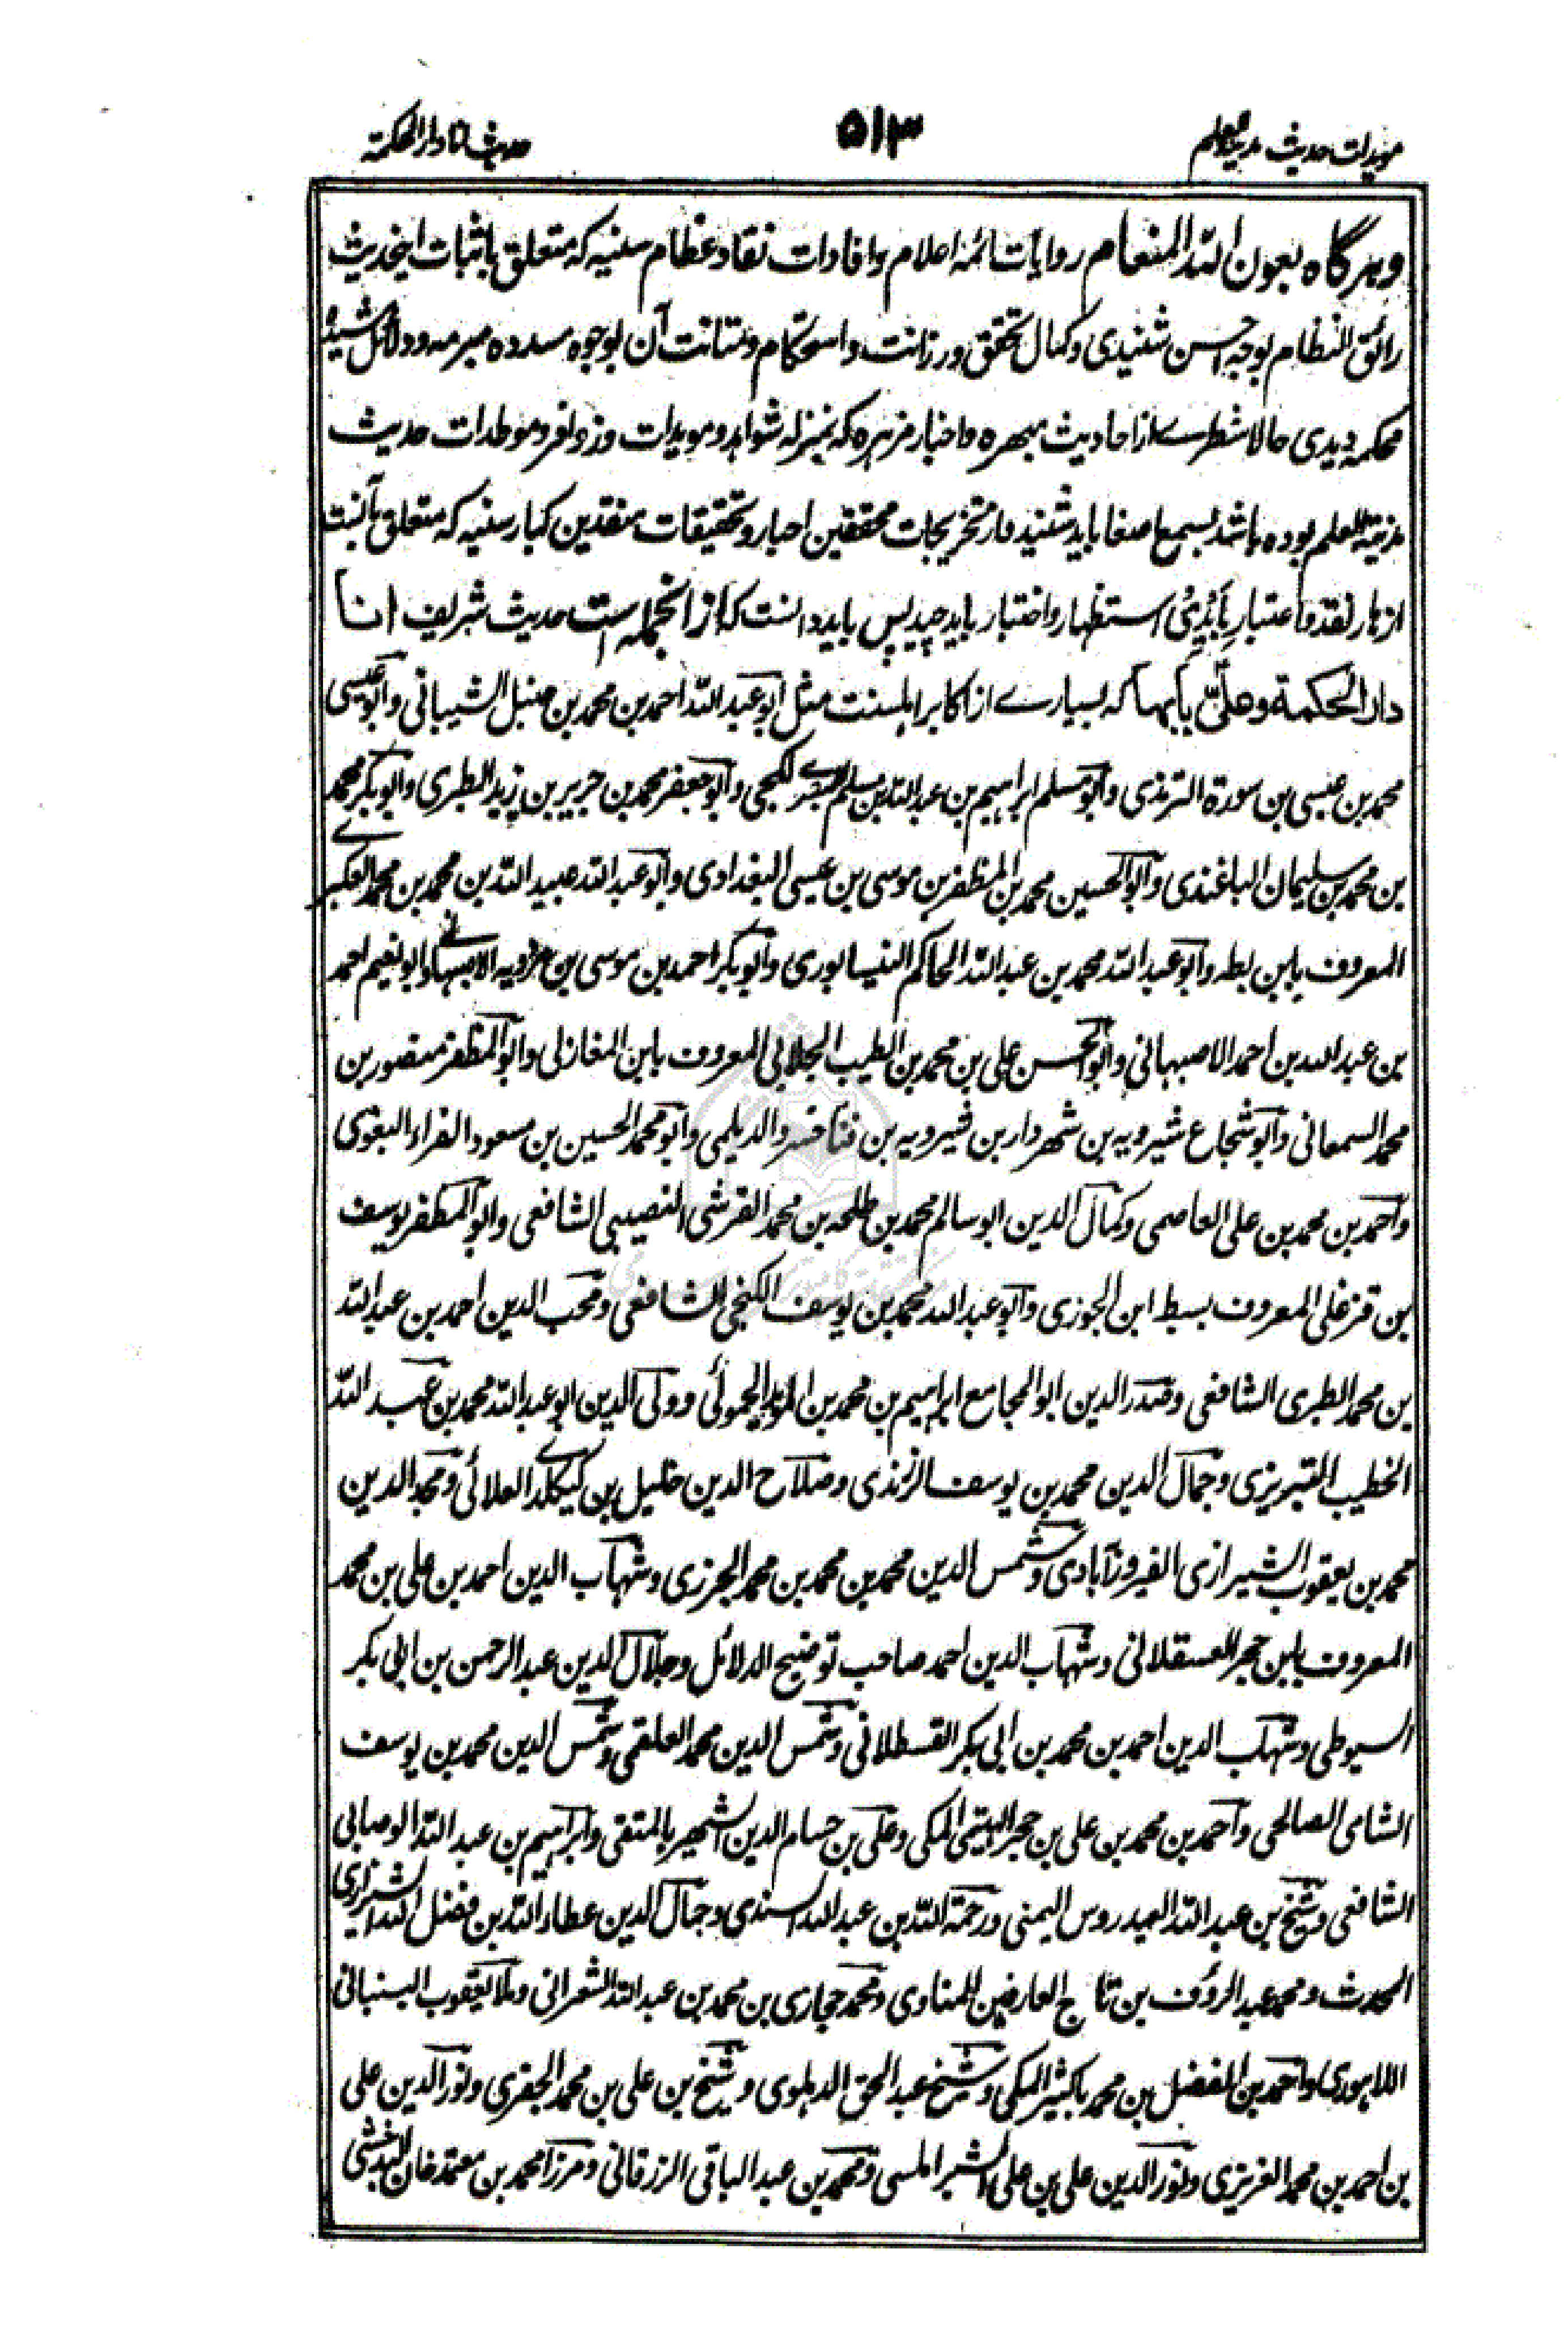 مویدات حدیث مدینة العلم
۵۱۳
حدیث انا دار الحکمة
وهرگاه بعون الله المنعام روایات ائمهٔ اعلام وافادات نقاد عظام سنیه که متعلق باثبات اینحدیث
رائق النظام بوجه احسن شنیدی وکمال تحقق ورزانت واستحکام ومتانت آن بوجوه مسدده مبرمه ودلائل مشیدهٔ
محکمه دیدی حالا شطرے از احادیث مبهره واخبار مزهره که بمنزله شواهد ومویدات وزوافر وموطدات حدیث
مدینة العلم بوده باشد بسمع اصغا باید شنید واز تخریجات محققین احبار وتحقیقات منقدین کبار سنیه که متعلق بآنست
ازهار نقد واعتبار بأیدِیُ استظهار واختبار باید چید پس باید دانست که از انجمله است حدیث شریف انا
دار الحکمة وعلیٌّ بابها که بسیارے از اکابر اهلسنت مثل ابو عبد الله احمد بن محمد بن حنبل الشیبانی وابو عیسی
محمد بن عیسی بن سورة الترمذی وابو مسلم ابراهیم بن عبد الله بن مسلم البصرے الکجی وابو جعفر محمد بن جریر بن یزید الطبری وابو بکر محمد
بن محمد بن سلیمان الباغندی وابو الحسین محمد بن المظفر بن موسی بن عیسی البغدادی وابو عبد الله عبید الله بن محمد بن محمد العکبرے
المعروف بابن بطه وابو عبد الله محمد بن عبد الله الحاکم النیسابوری وابو بکر احمد بن موسی بن مردویه الاصبهانے وابو نعیم احمد
بن عبد الله بن احمد الاصبهانی وابو الحسن علی بن محمد بن الطیب الجلابی المعروف بابن المغازلی وابو المظفر منصور بن
محمد السمعانی وابو شجاع شیرویه بن شهردار بن شیرویه بن فناخسرو الدیلمی وابو محمد الحسین بن مسعود الفراء البغوی
واحمد بن محمد بن علی العاصمی وکمال الدین ابو سالم محمد بن طلحه بن محمد القرشی النصیبی الشافعی وابو المظفر یوسف
بن قزغلی المعروف بسبط ابن الجوزی وابو عبد الله محمد بن یوسف الکنجی الشافعی ومحب الدین احمد بن عبد الله
بن محمد الطبری الشافعی وصدر الدین ابو المجامع ابراهیم بن محمد بن الموید الحموئی وولی الدین ابو عبد الله محمد بن عبد الله
الخطیب التبریزی وجمال الدین محمد بن یوسف الزرندی وصلاح الدین خلیل بن کیکلدے العلائی ومجد الدین
محمد بن یعقوب الشیرازی الفیروزآبادی وشمس الدین محمد بن محمد بن محمد الجزری وشهاب الدین احمد بن علی بن محمد
المعروف بابن حجر العسقلانی وشهاب الدین احمد صاحب توضیح الدلائل وجلال الدین عبد الرحمن بن ابی بکر
السیوطی وشهاب الدین احمد بن محمد بن ابی بکر القسطلانی وشمس الدین محمد العلقمی وشمس الدین محمد بن یوسف
الشامی الصالحی واحمد بن محمد بن علی بن حجر الهیتمی المکی وعلی بن حسام الدین الشهیر بالمتقی وابراهیم بن عبد الله الوصابی
الشافعی وشیخ بن عبد الله العیدروس الیمنی ورحمة الله بن عبد الله السندی وجمال الدین عطاء الله بن فضل الله الشیرازی
المحدث ومحمد عبد الرؤف بن تاج العارفین المناوی ومحمد حجازی بن محمد بن عبد الله الشعرانی وملا یعقوب البنبانی
اللاهوری واحمد بن الفضل بن محمد باکثیر المکی وشیخ عبد الحق الدهلوی وشیخ بن علی بن محمد الجفری ونور الدین علی
بن احمد بن محمد العزیزی ونور الدین علی بن علی الشبراملسی ومحمد بن عبد الباقی الزرقانی ومرزا محمد بن معتمد خان البدخشی